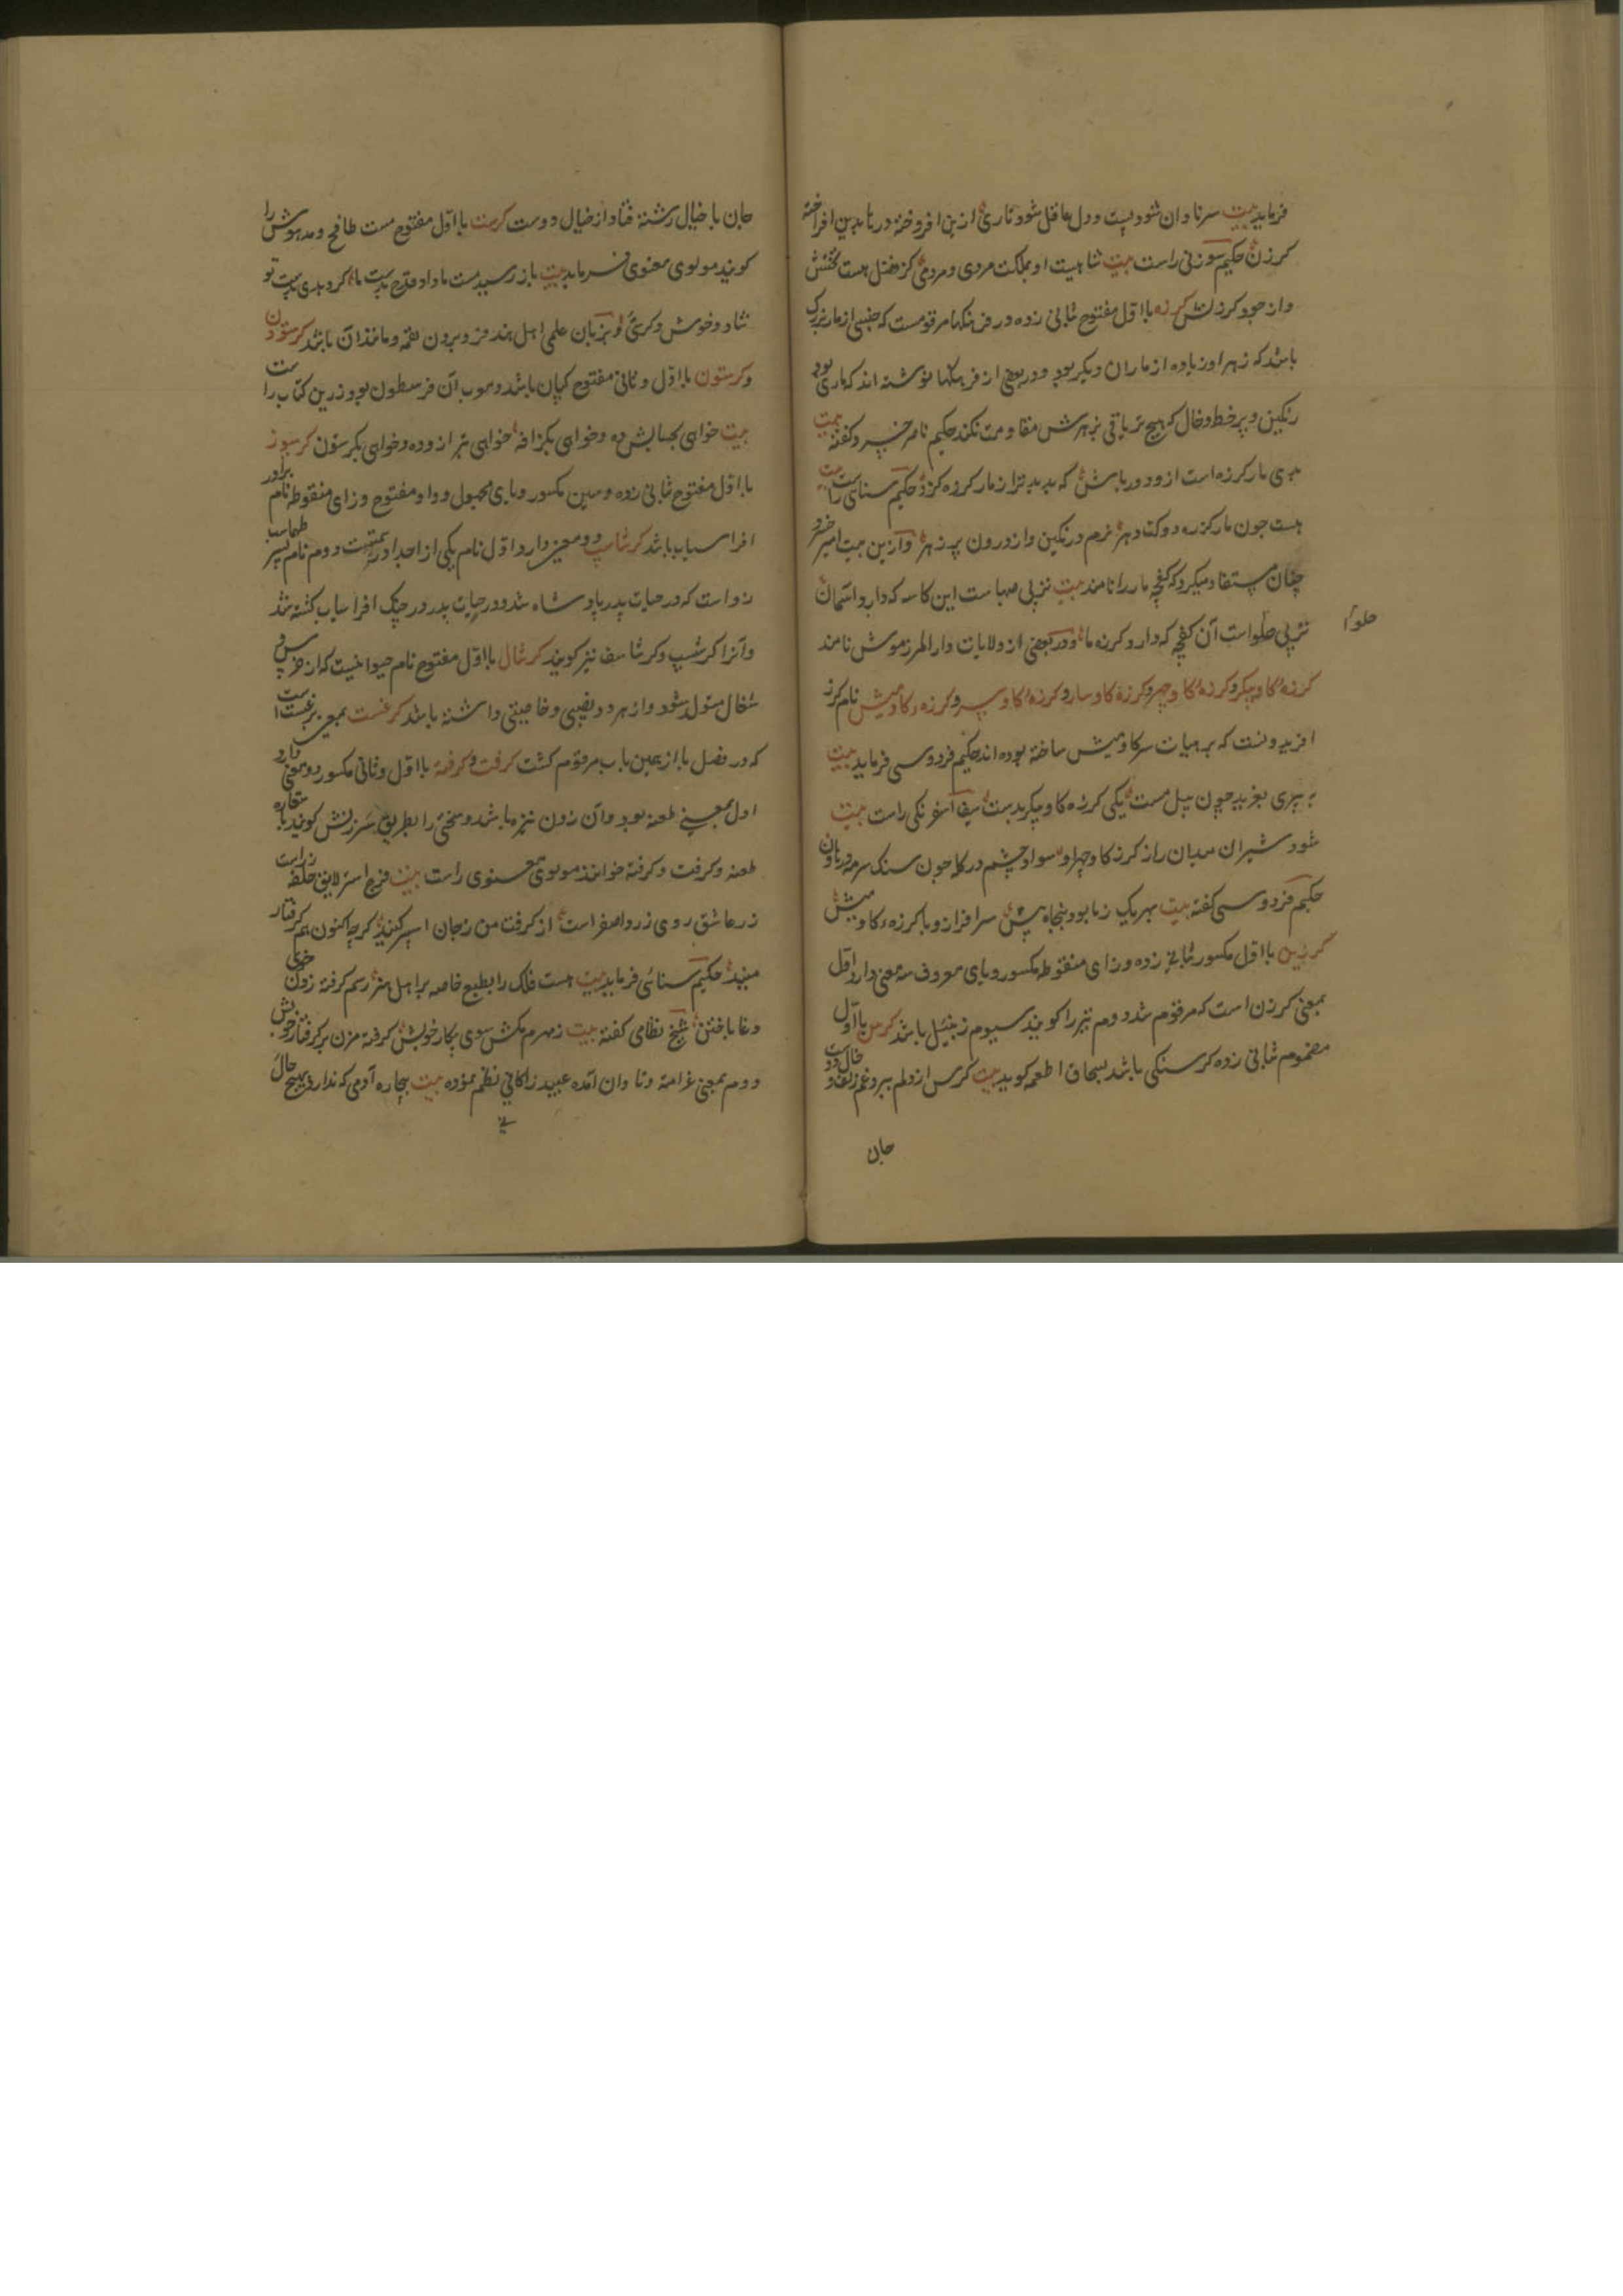 فرماید بیت سر نادان شود پست و دل عاقل شود تاری ازین افروخته در تا بدین افراخته
کرزن حکیم سوزنی راست بیت ثنا بیت او بملکت مردی و مردمی کز فضل هست تختش
واز جود کرزنش کرزه با اول مفتوح بثانی زده در فرهنکها مرقومست که جنسی از مار بزرک
باشد که زهر او زیاده از ماران دیکر بود و در بعضی از فرهنکها نوشته اند که ماری بود
رنکین و پر خط و خال که هیچ تریاقی بزهرش مقاومت نکند حکیم ناصر خسرو کفته بیت
مار کرزه است ازو دور باش که بد بدتر از مار کرزه کزد حکیم سنائی راست بیت
هست چون مار کرزه دولت دهر نرم و رنکین و از درون پر زهر و از این بیت امیر خسرو
چنان مستفاد میکردد که کفچه مار را نامند بیت نز پی صهباست این کاسه که دارد آسمان
نز پی حلواست آن کفچه که دارد کرزه مار و در بعضی از ولایات دار المرز موش نامند
حلوا
کرزه کاوپیکر و کرزه کاوچهر و کرزه کاوسار و کرزه کاوسر و کرزه کاومیش نام کرز
افریدونست که بر هیات سر کاومیش ساخته بوده اند حکیم فردوسی فرماید بیت
بغرید چون پیل مست یکی کرزه کاوپیکر بدست سیف اسفرنکی راست بیت
شود شیران میدان راز کرز کاوچهر او سواد چشم در کله چون سنک سرمه در هاون
حکیم فردوسی کفته بیت بهر یک زما بود پنجاه بیش سرافراز و با کرزه کاومیش
کرزین با اول مکسور بثانی زده و زای منقوطه مکسور و یای معروف سه معنی دارد اول
بمعنی کرزن است که مرقوم شد دوم تیر را کویند سیوم زنبیل باشد کرس با اول
مضموم بثانی زده کرسنکی باشد بسحاق اطعمه کوید بیت کرس از دلم ببرد غم زلف و خال دوست
جان
جان با خیال رشته فتاد از خیال دوست کرست با اول مفتوح مست طافح و مدهوش را
کویند مولوی معنوی فرماید بیت باز رسید مست ما داد قدح بدست ما کرد بدی بدست تو
شاد و خوش و کرستی و بزبان علمی اهل هند فرو بردن لقمه و مانند آن باشد کرستون
و کرستون با اول و ثانی مفتوح کپان باشد و معرب آن قرسطون بود زرین کتاب راست
بیت خواهی بحسابش ده و خواهی بکزافه خواهی بترازو ده و خواهی بکرستون کرسیوز
با اول مفتوح بثانی زده و سین مکسور و یای مجهول و واو مفتوح و زای منقوطه نام برادر
افراسیاب باشد کرشاسپ دو معنی دارد اول نام یکی از اجداد رستمست دوم نام پسر طهماسب
زو است که در حیات پدر پادشاه شد و در حیات پدر در جنک افراسیاب کشته شد
و آنرا کرشسپ و کرشاسف نیز کویند کرشال با اول مفتوح نام حیوانیست که از خرس و
شغال متولد شود و از هر دو نصیبی و خاصیتی داشته باشد کرغست بمعنی برغست است
که در فصل با از همین باب مرقوم کشت کرفت و کرفته با اول و ثانی مکسور دو معنی دارد
اول بمعنی طعنه بود و آن زدن نیزه باشد و سخنی را بطریق سرزنش کویند باستعاره
طعنه و کرفت و کرفته خوانند مولوی معنوی راست بیت فرج استر لایق حلقه زراست
زر عاشق روی زرد اصفر است از کرفت من زجان اسپر کنید کرچه اکنون هم کرفتار
منید حکیم سنائی فرماید بیت هست فلک را بطبع خاصه بر اهل هنر رسم کرفته زدن خوی
دغا باختن شیخ نظامی کفته بیت زمهرم مکش سوی پیکار خویش کرفته مزن بر کرفتار خویش
دوم بمعنی غرامت و تاوان آمده عبید زاکانی نظم نموده بیت بیچاره آدمی که ندارد بهیچ حال